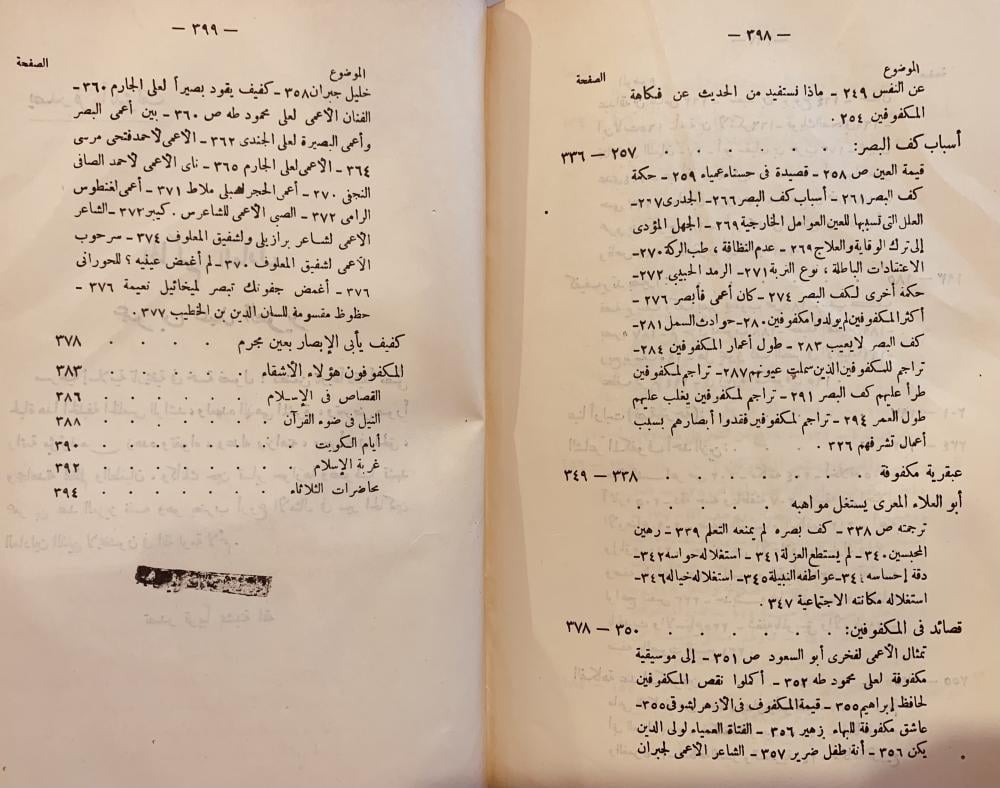 — ٣٩٨ —
الموضوع الصفحة
عن النفس ٢٤٩ – ماذا نستفيد من الحديث عن فكاهة
المكفوفين ٢٥٤ .
أسباب كف البصر: . . . . . . ٢٥٧ – ٣٣٦
قيمة العين ص ٢٥٨ – قصيدة فى حسناء عمياء ٢٥٩ – حكمة
كف البصر ٢٦١ – أسباب كف البصر ٢٦٦ – الجدرى ٢٦٧ –
العلل التى تسببها للعين العوامل الخارجية ٢٦٩ – الجهل المؤدى
إلى ترك الوقاية والعلاج ٢٦٩ – عدم النظافة ، طب الركة ٢٧٠ –
الاعتقادات الباطلة ، نوع التربة ٢٧١ – الرمد الحبيبى ٢٧٢ –
حكمة أخرى لكف البصر ٢٧٤ – كان أعمى فأبصر ٢٧٦ –
أكثر المكفوفين لم يولدوا مكفوفين ٢٨٠ – حوادث السمل ٢٨١ –
كف البصر لا يعيب ٢٨٣ – طول أعمار المكفوفين ٢٨٤ –
تراجم للمكفوفين الذين سملت عيونهم ٢٨٧ – تراجم لمكفوفين
طرأ عليهم كف البصر ٢٩١ – تراجم لمكفوفين يغلب عليهم
طول العمر ٢٩٤ – تراجم لمكفوفين فقدوا أبصارهم بسبب
أعمال تشرفهم ٣٢٦ .
عبقرية مكفوفة . . . . . . ٣٣٨ – ٣٤٩
أبو العلاء المعرى يستغل مواهبه . . . . .
ترجمته ص ٣٣٨ – كف بصره لم يمنعه التعلم ٣٣٩ – رهين
المحبسين ٣٤٠ – لم يستطع العزلة ٣٤١ – استغلاله حواسه ٣٤٢ –
دقة إحساسه – عواطفه النبيلة ٣٤٥ – استغلاله خياله ٣٤٦ –
استغلاله مكانته الاجتماعية ٣٤٧ .
قصائد فى المكفوفين: . . . . . . ٣٥٠ – ٣٧٨
تمثال الأعمى لفخرى أبو السعود ص ٣٥١ – إلى موسيقية
مكفوفة لعلى محمود طه ٣٥٢ – أكملوا نقص المكفوفين
لحافظ إبراهيم ٣٥٥ – قيمة المكفوف فى الأزهر لشوقى ٣٥٥ –
عاشق مكفوفة للبهاء زهير ٣٥٦ – الفتاة العمياء لولى الدين
يكن ٣٥٦ – أنة طفل ضرير ٣٥٧ – الشاعر الأعمى لجبران
— ٣٩٩ —
الموضوع الصفحة
خليل جبران ٣٥٨ – كفيف يقود بصيراً لعلى الجارم ٣٦٠ –
الفنان الأعمى لعلى محمود طه ص ٣٦٠ – بين أعمى البصر
وأعمى البصيرة لعلى الجندى ٣٦٢ – الأعمى لاحمد فتحى مرسى
٣٦٤ – الأعمى لعلى الجارم ٣٦٥ – ناى الأعمى لأحمد الصافى
النجفى ٣٧٠ – أعمى الحجر لشبلى ملاط ٣٧١ – أعمى لغنطوس
الرامى ٣٧٢ – الصبى الأعمى للشاعر س . كيبر ٣٧٢ – الشاعر
الأعمى لشاعر برازيلى ولشفيق المعلوف ٣٧٤ – سرحوب
الأعمى لشفيق المعلوف ٣٧٠ – لم أغمض عينيه ؟ للحورانى
٣٧٦ – أغمض جفونك تبصر لميخائيل نعيمة ٣٧٦ –
حظوظ مقسومة للسان الدين بن الخطيب ٣٧٧ .
كفيف يأبى الإبصار بعين مجرم . . . . . ٣٧٨
المكفوفون هؤلاء الأشقاء . . . . . ٣٨٣
القصاص فى الإسلام . . . . . ٣٨٦
النيل فى ضوء القرآن . . . . . ٣٨٨
أيام الكويت . . . . . ٣٩٠
غربة الإسلام . . . . . ٣٩٢
محاضرات الثلاثاء . . . . . ٣٩٤